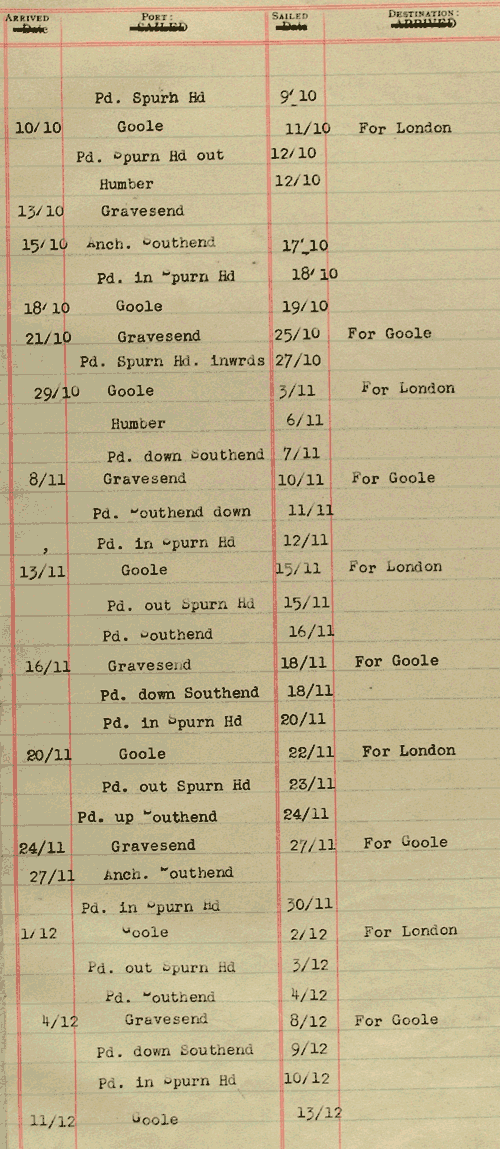 ARRIVED Date PORT: SAILED SAILED Date DESTINATION: ARRIVED
Pd. Spurn Hd 9/10
10/10 Goole 11/10 For London
Pd. Spurn Hd out 12/10
Humber 12/10
13/10 Gravesend
15/10 Anch. Southend 17/10
Pd. in Spurn Hd 18/10
18/10 Goole 19/10
21/10 Gravesend 25/10 For Goole
Pd. Spurn Hd. inwrds 27/10
29/10 Goole 3/11 For London
Humber 6/11
Pd. down Southend 7/11
8/11 Gravesend 10/11 For Goole
Pd. Southend down 11/11
Pd. in Spurn Hd 12/11
13/11 Goole 15/11 For London
Pd. out Spurn Hd 15/11
Pd. Southend 16/11
16/11 Gravesend 18/11 For Goole
Pd. down Southend 18/11
Pd. in Spurn Hd 20/11
20/11 Goole 22/11 For London
Pd. out Spurn Hd 23/11
Pd. up Southend 24/11
24/11 Gravesend 27/11 For Goole
27/11 Anch. Southend
Pd. in Spurn Hd 30/11
1/12 Goole 2/12 For London
Pd. out Spurn Hd 3/12
Pd. Southend 4/12
4/12 Gravesend 8/12 For Goole
Pd. down Southend 9/12
Pd. in Spurn Hd 10/12
11/12 Goole 13/12